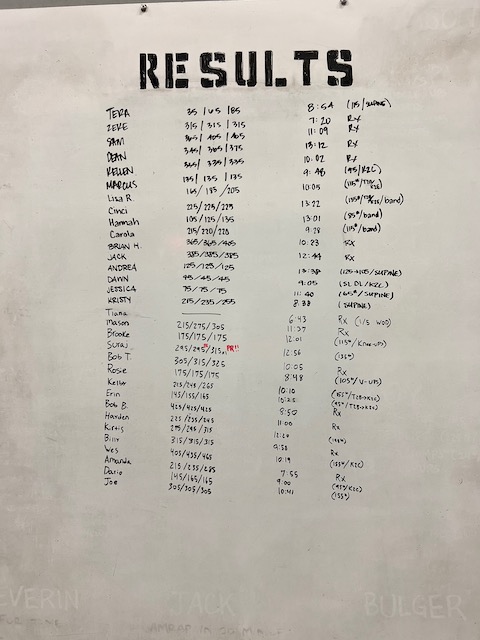 RESULTS
TERA 35 / 65 / 85 8:54 (115/SUPINE)
ZEKE 315 / 315 / 315 7:20 RX
SAM 365 / 405 / 405 11:09 RX
DEAN 345 / 365 / 375 13:12 RX
KELLEN 335 / 335 10:02 RX
MARCUS 135 / 135 / 135 9:48 (95/K2C)
Lisa R. 165 / 185 / 205 10:05
Cinci 225/225/225 13:22
Hannah 105/125/135 13:01 (85#/band)
Carola 215/220/220 9:28 (115#/band)
BRIAN H. 365/365/405 10:23 RX
JACK 385/385/385 12:44 RX
ANDREA 125/125/125 13:38 /SUPINE)
DAWN 45/45/45 9:05 (SL DL/K2C)
JESSICA 75/75/75 11:40 (65#/SUPINE)
KRISTY 215/235/255 8:38 (SUPINE)
Tiana
Mason 215/275/305 6:43 Rx (1/2 WOD)
Brooke 175/175/175 11:37 Rx
Suraj 295/295/315 PR!! 12:01 (115#/Knee-ups)
Bob T. 305/315/325 12:56 (135#)
Rosie 175/175/175 10:05 Rx
Kelter 215/245/265 8:48 (105#/V-ups)
Erin 145/155/165 10:10
Bob B. 425/425/425 10:25
Harden 225/235/245 8:50 Rx
Kurtis 275/295/315 11:00 Rx
Billy 315/315/315 12:20
Wes 405/435/465 9:50 Rx
Amanda 215/235/255 10:19 (135#/K2C)
Dario 145/165/165 7:55 Rx
Joe 305/305/305 9:00 (95#/K2C)
10:41 (135#)
EVERIN JACK BULGER
AMRAP